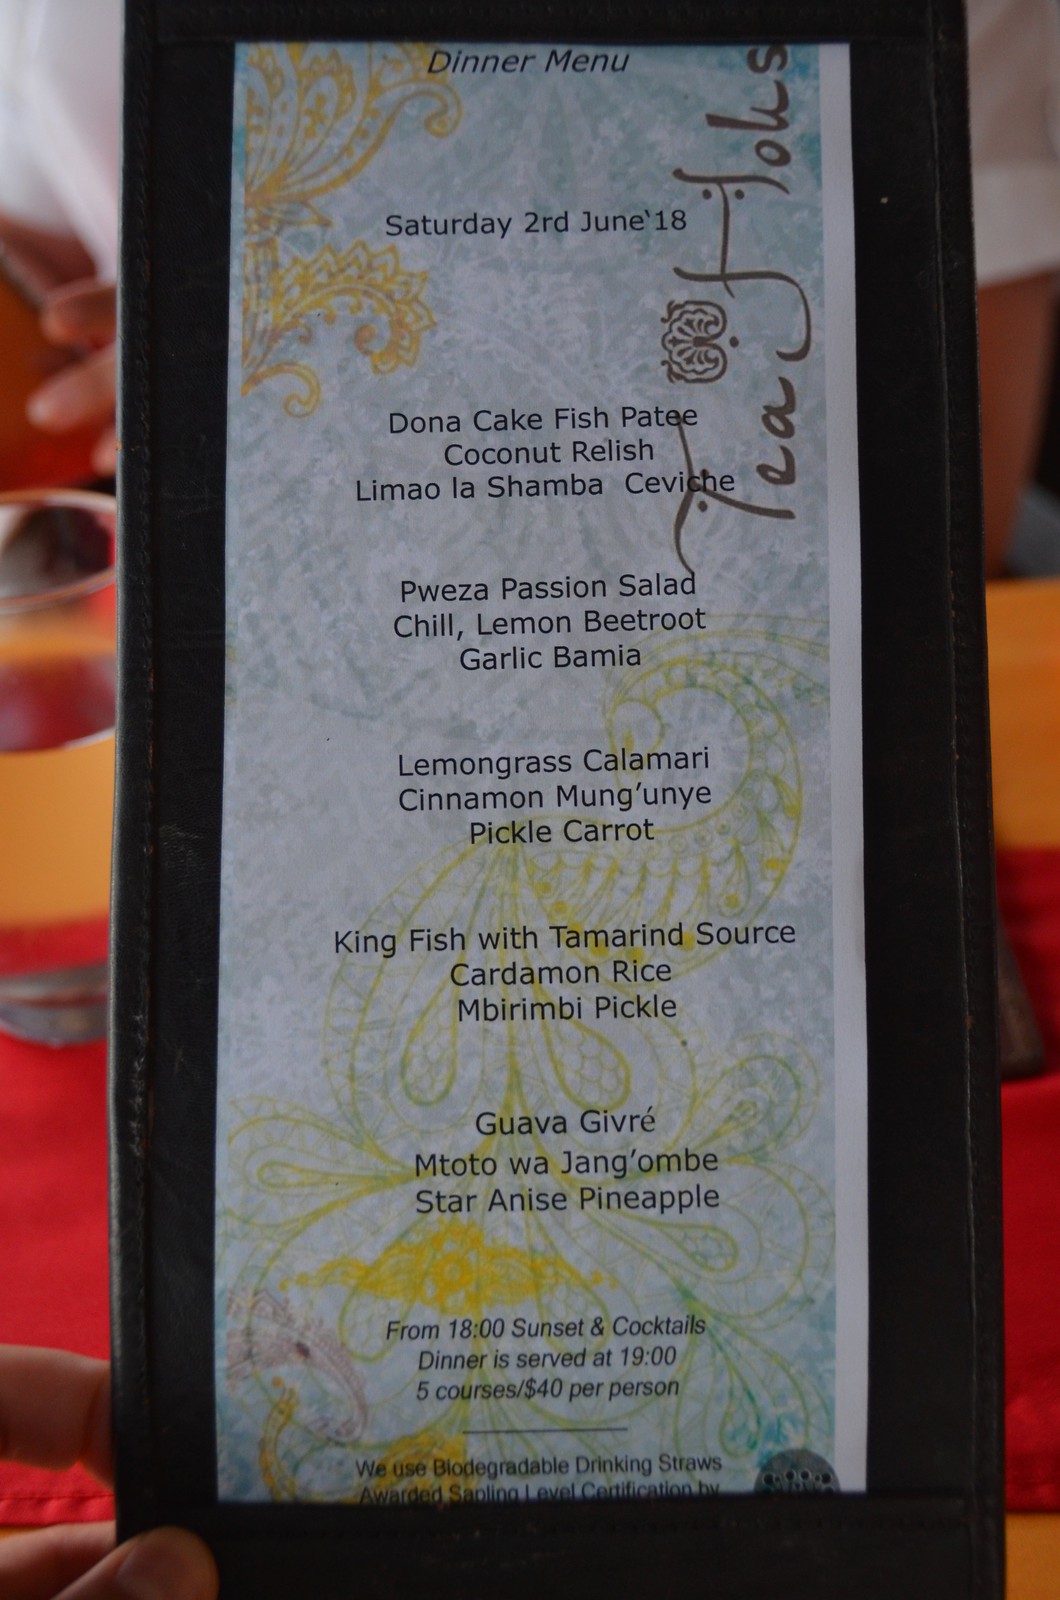 Dinner Menu
Tea House
Saturday 2rd June‘18
Dona Cake Fish Patee
Coconut Relish
Limao la Shamba Ceviche
Pweza Passion Salad
Chill, Lemon Beetroot
Garlic Bamia
Lemongrass Calamari
Cinnamon Mung’unye
Pickle Carrot
King Fish with Tamarind Source
Cardamon Rice
Mbirimbi Pickle
Guava Givré
Mtoto wa Jang’ombe
Star Anise Pineapple
From 18:00 Sunset & Cocktails
Dinner is served at 19:00
5 courses/$40 per person
We use Biodegradable Drinking Straws
Awarded Sapling Level Certification by